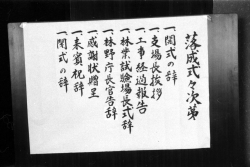 落成式々次第
一、開式の辞
一、支場長挨拶
一、工事経過報告
一、林業試験場長式辞
一、林野庁長官告辞
一、感謝状贈呈
一、来賓祝辞
一、閉式の辞